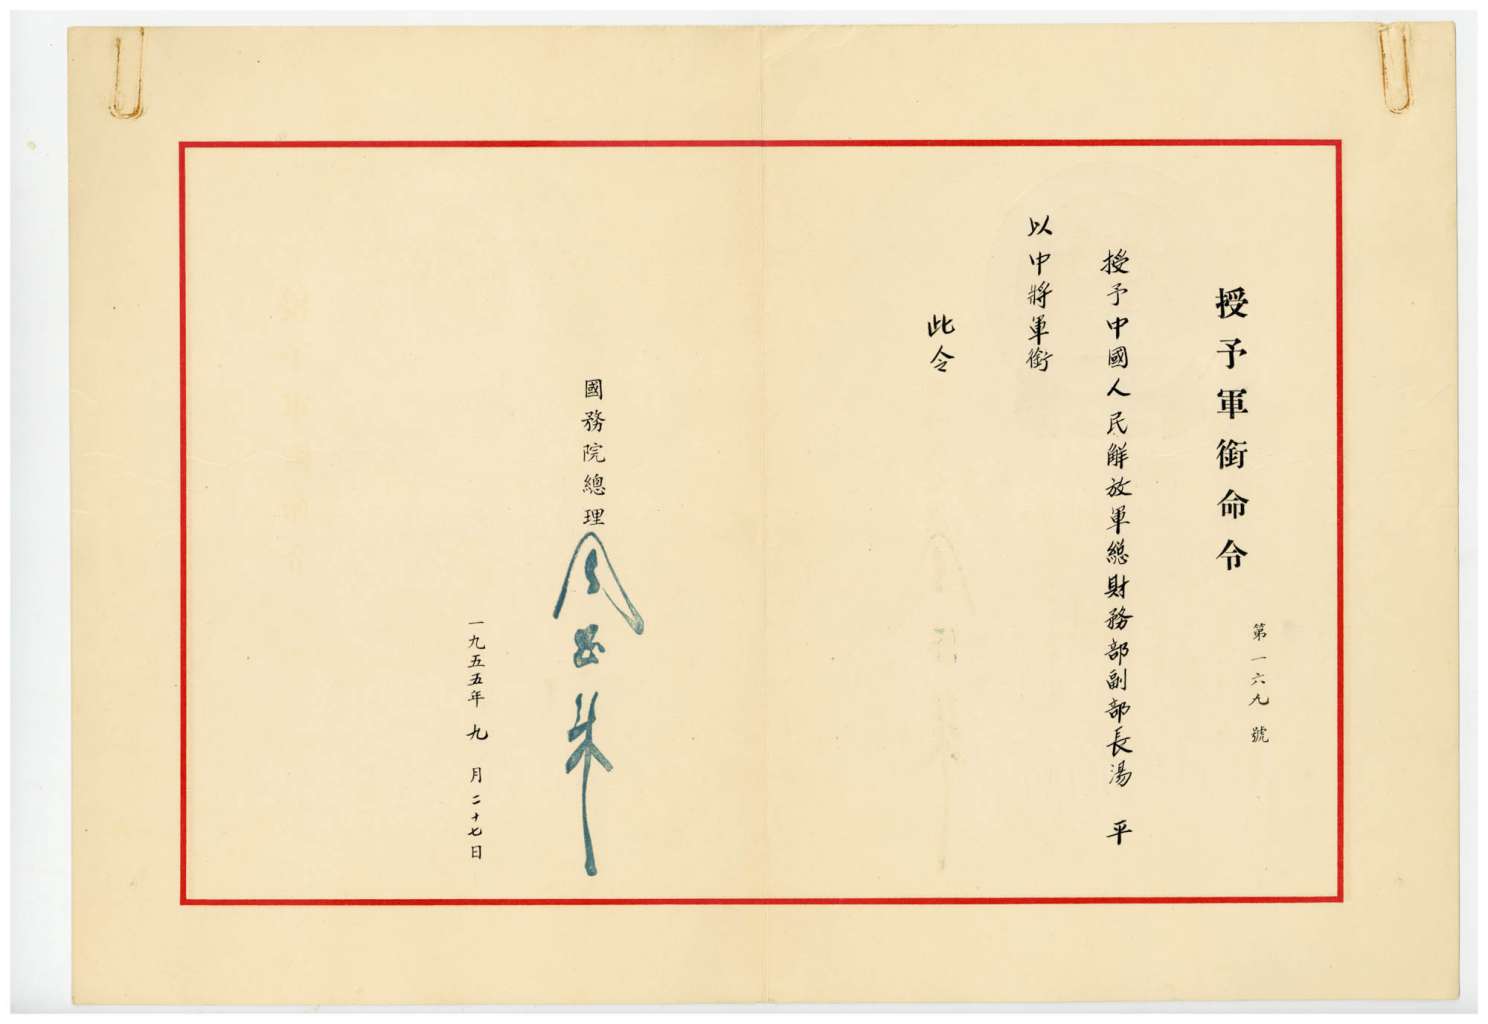 授予軍銜命令
第一六九號
授予中國人民解放軍總財務部副部長湯 平
以中將軍銜
此令
國務院總理
周恩来
一九五五年 九 月二十七日